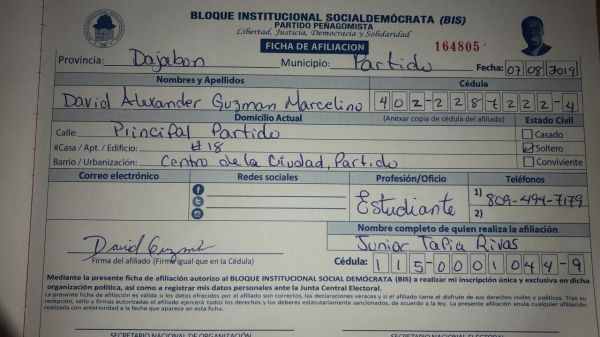 BLOQUE INSTITUCIONAL SOCIALDEMÓCRATA (BIS)
PARTIDO PEÑAGOMISTA
Libertad, Justicia, Democracia y Solidaridad
FICHA DE AFILIACION 164805
Provincia: Dajabon Municipio: Partido Fecha: 07/08/2019
Nombres y Apellidos Cédula
David Alexander Guzman Marcelino 402-2287222-4
Domicilio Actual (Anexar copia de cédula del afiliado) Estado Civil
Calle: Principal Partido Casado
#Casa / Apt. / Edificio: #18 Soltero
Barrio / Urbanización: Centro de la Ciudad, Partido Conviviente
Correo electrónico Redes sociales Profesión/Oficio Teléfonos
Estudiante 1) 809-494-7179
2)
Nombre completo de quien realiza la afiliación
David Guzman Junior Tapia Rivas
Firma del afiliado (Firma igual que en la Cédula) Cédula: 115-0001044-9
Mediante la presente ficha de afiliación autorizo al BLOQUE INSTITUCIONAL SOCIAL DEMÓCRATA (BIS) a realizar mi inscripción única y exclusiva en dicha
organización política, así como a registrar mis datos personales ante la Junta Central Electoral.
La presente ficha de afiliación es válida si los datos ofrecidos por el afiliado son correctos, las declaraciones veraces y si el afiliado tiene el disfrute de sus derechos civiles y políticos. Tras su
recepción, sello y firmas autorizadas el afiliado ejercerá todos los derechos y los deberes estatutariamente sancionados, de acuerdo a la ley. La presente afiliación anula cualquier afiliación
realizada con anterioridad a la fecha que aparece en esta ficha.
SECRETARIO NACIONAL DE ORGANIZACIÓN SECRETARIO NACIONAL ELECTORAL